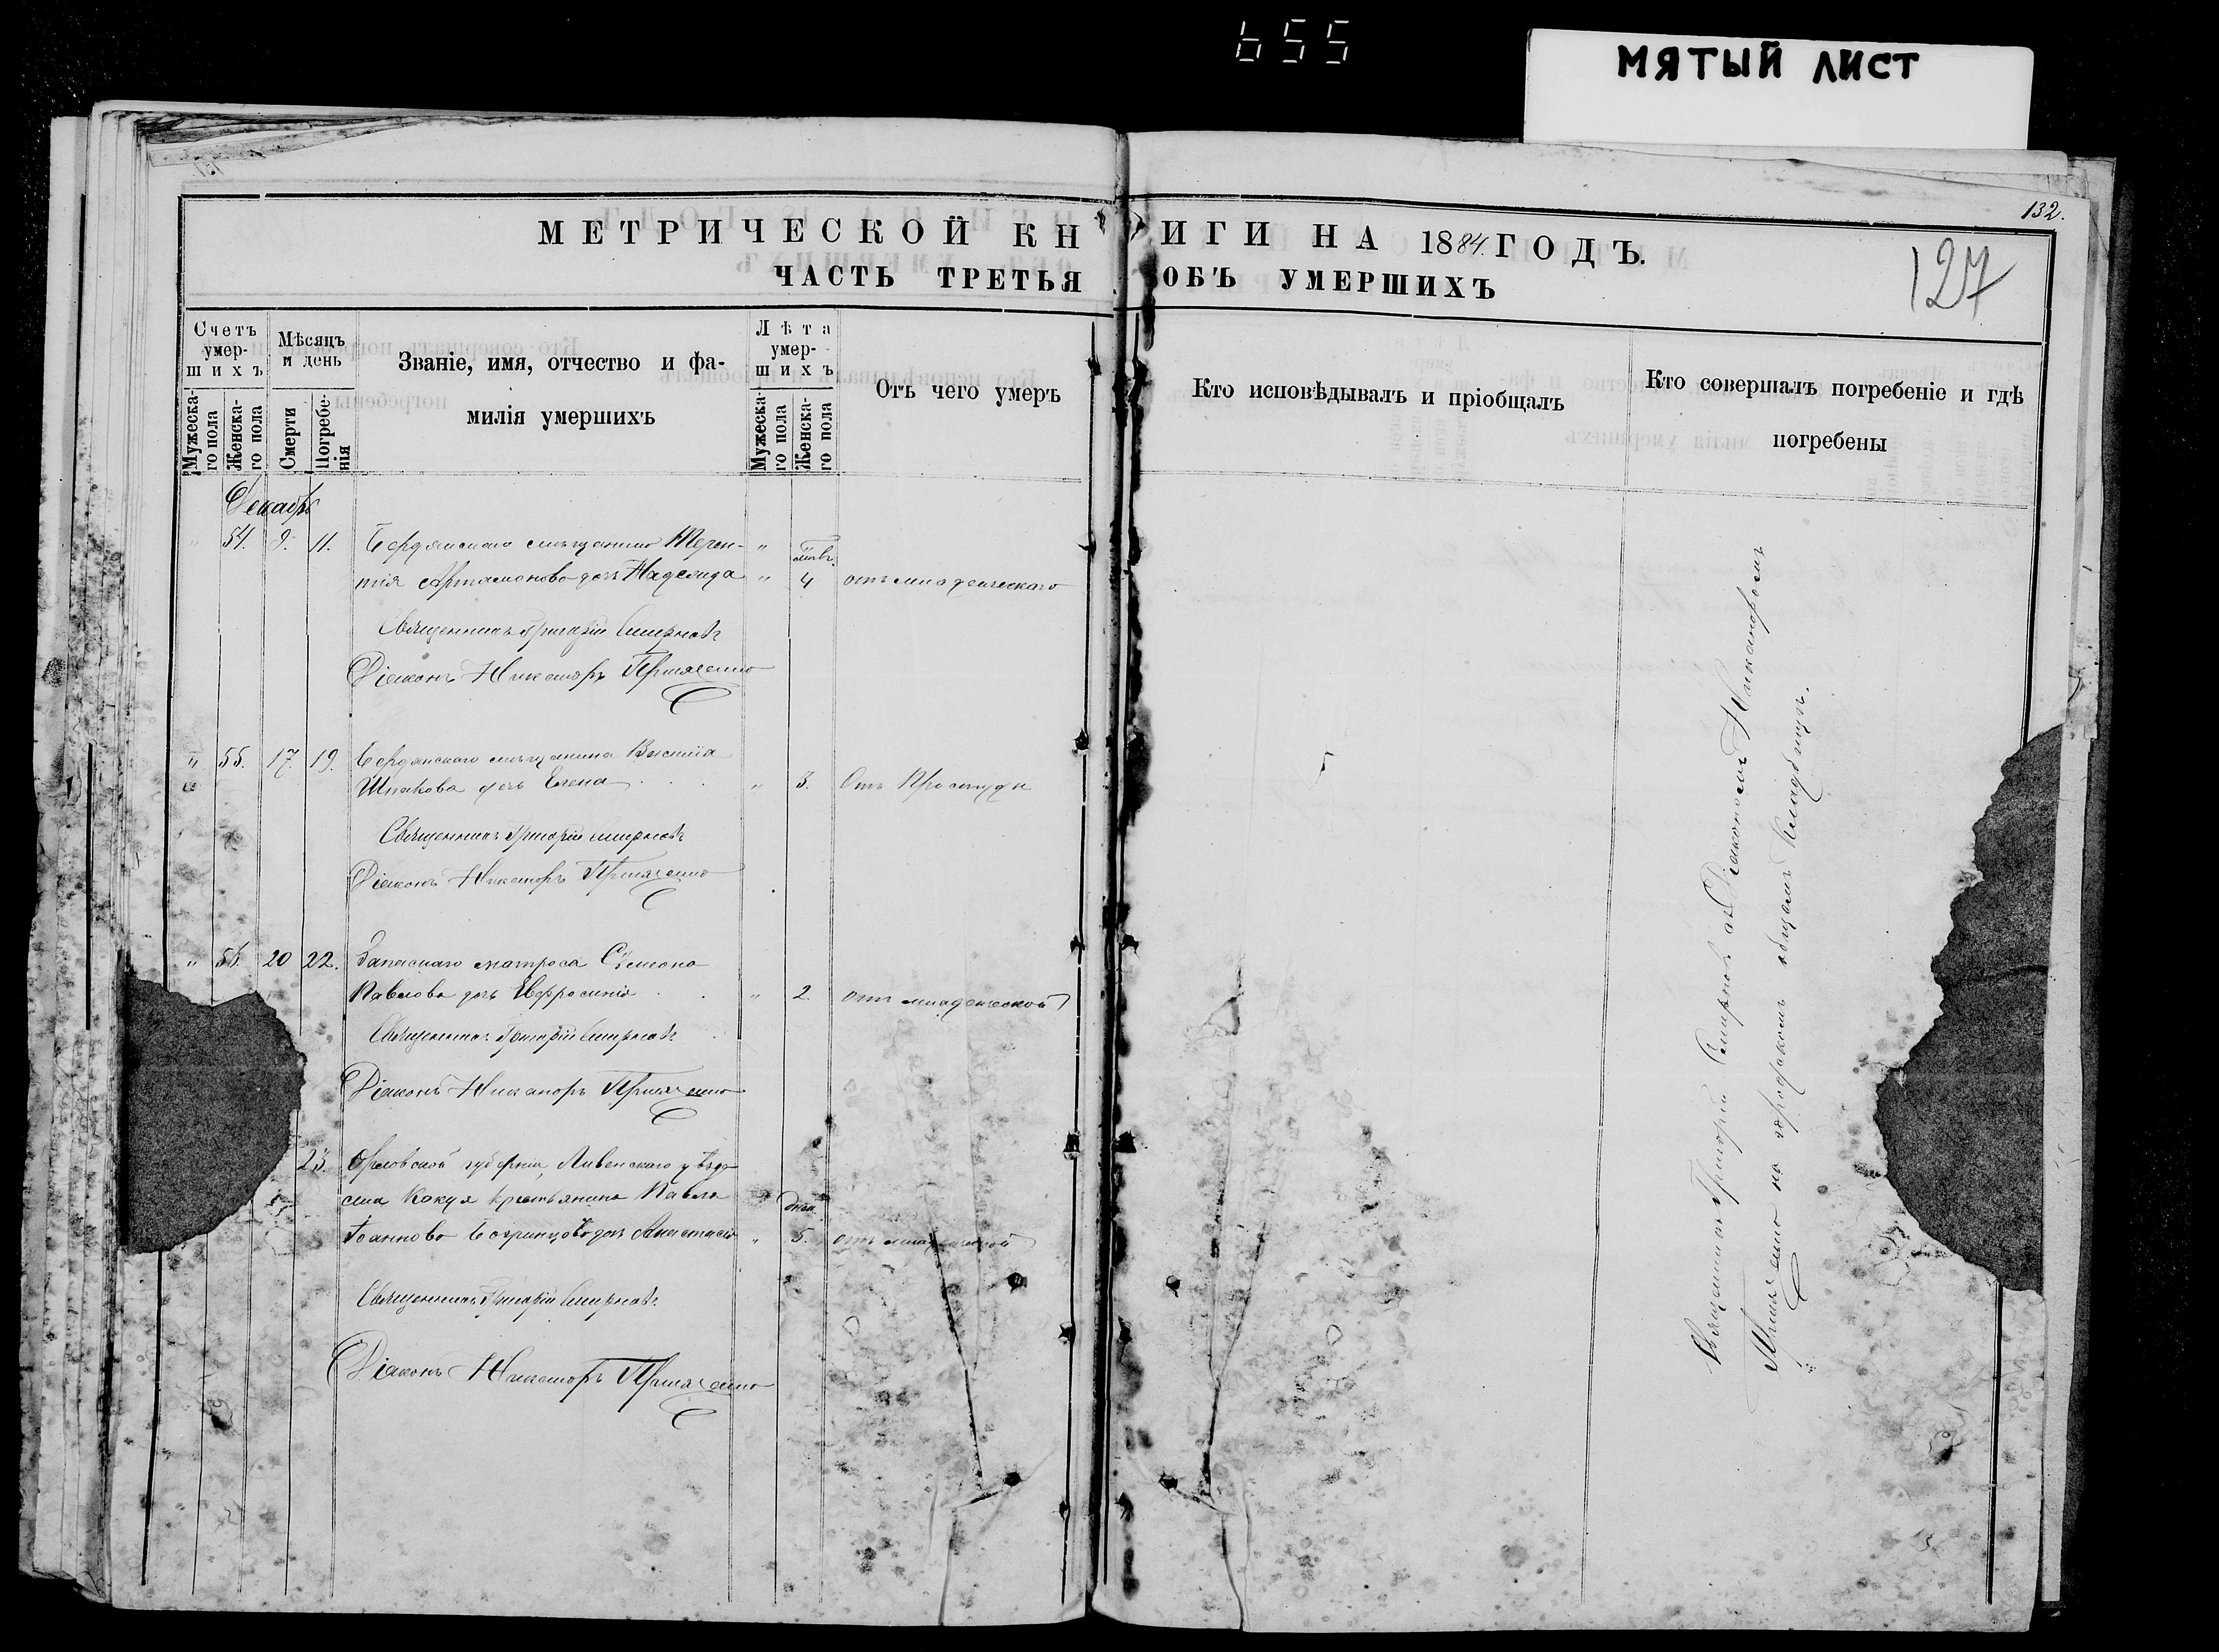 655
МЯТЫЙ ЛИСТ
132.
127
МЕТРИЧЕСКОЙ КНИГИ НА 1884. ГОДЪ.
ЧАСТЬ ТРЕТЬЯ ОБЪ УМЕРШИХЪ
Счетъ умер-шихъ
Мужеска-го пола
Женска-го пола
Мѣсяцъ и день
Смерти
Погребе-нія
Званіе, имя, отчество и фа-
милія умершихъ
Лѣта умер-шихъ
Мужеска-го пола
Женска-го пола
Отъ чего умеръ
Кто исповѣдывалъ и пріобщалъ
Кто совершалъ погребеніе и гдѣ
погребены
Декабрь
" 54. 9. 11. Бердянскаго мѣщанина Терен- "
тія Артамонова дочь Надежда " 4 отъ младенческаго
Священникъ Григорій Смирновъ
Діаконъ Никаноръ
" 55. 17. 19. Бердянскаго мѣщанина
Шпакова дочь Елена " 3. Отъ Простуды
Священникъ Григорій Смирновъ
Діаконъ Никаноръ
" 56. 20 22. Запаснаго матроса Сѵмеона
Павлова дочь Евфросинія " 2. отъ младенческой
Священникъ Григорій Смирновъ
Діаконъ Никаноръ
23. Орловской губерніи, Ливенскаго уѣзда
села крестьянина Павла дней
Іоаннова дочь Анастасія " 5. отъ младенческой
Священникъ Григорій Смирновъ
Діаконъ Никаноръ
Священникъ Григорій Смирновъ съ Діакономъ Никаноромъ
на городскомъ общемъ Кладбищѣ.